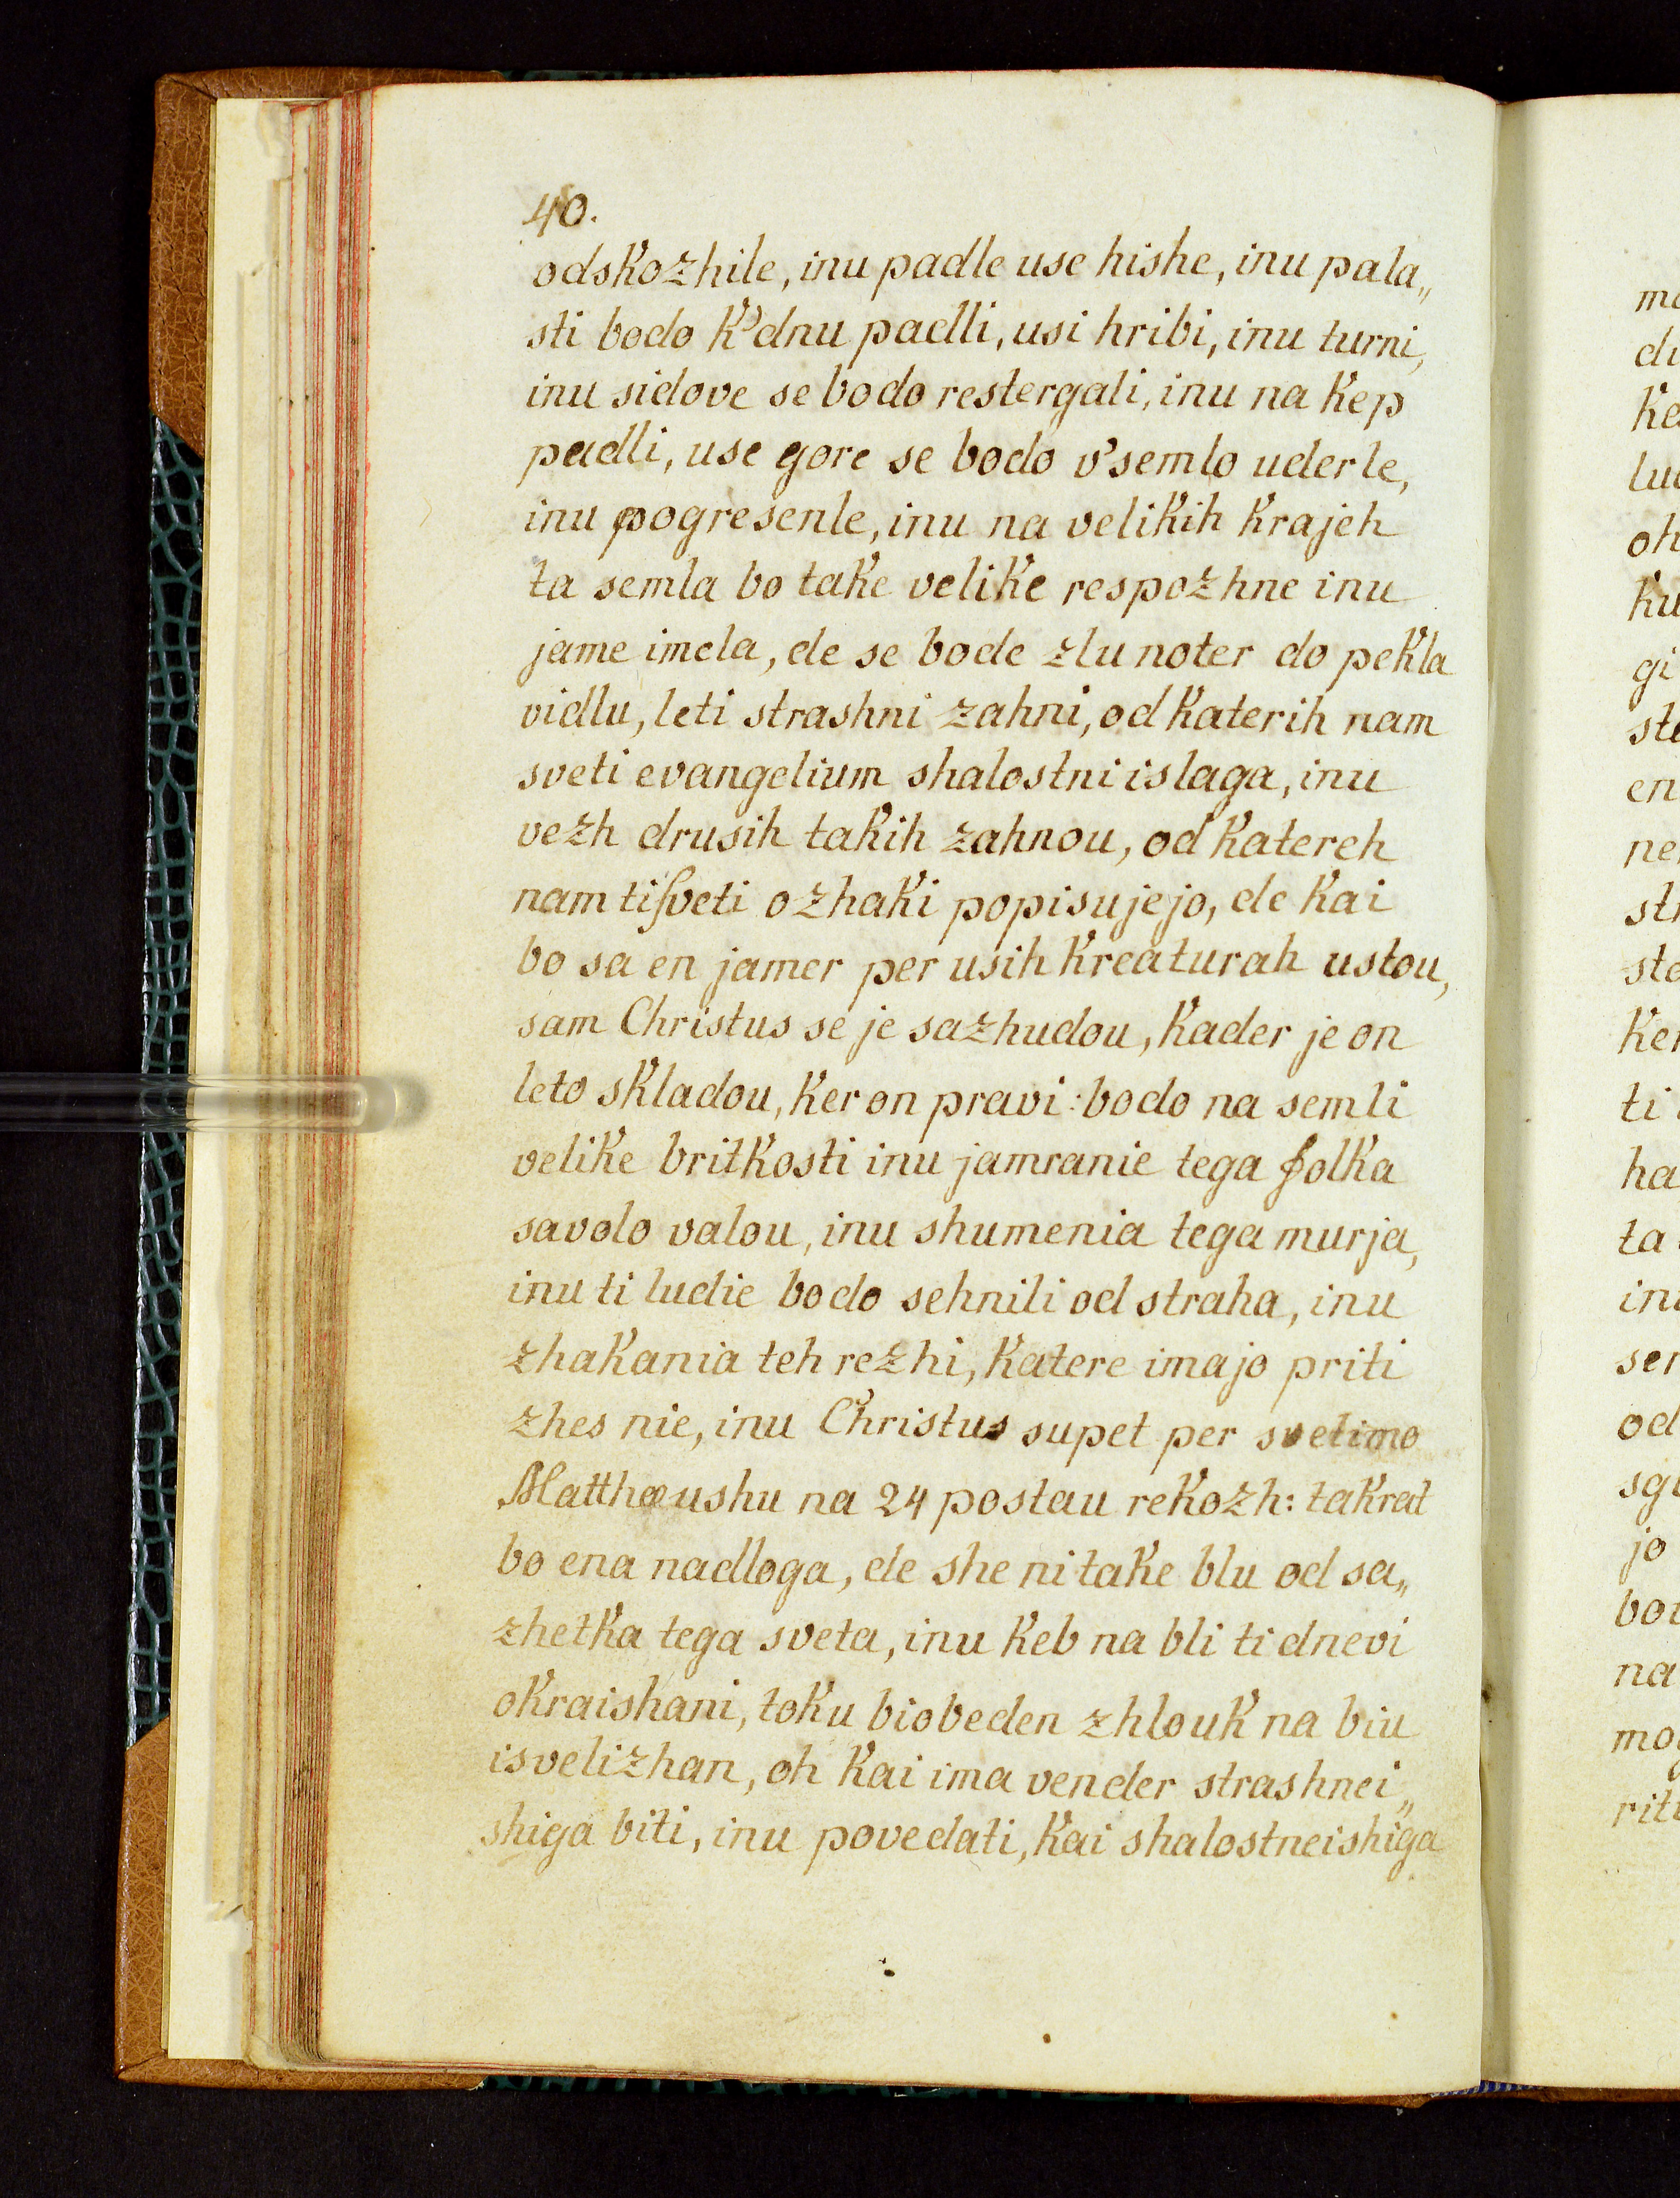 40.
odskozhile, inu padle use hishe, inu pala„
sti bodo k'dnu padli, usi hribi, inu turni,
inu sidove se bodo restergali, inu na kep
padli, use gore se bodo v'semlo uderle,
inu pogresenle, inu na velikih krajeh
ta semla bo take velike respozhne inu
jame imela, de se bode zlu noter do pekla
vidlu, leti strashni zahni, od katerih nam
sveti evangelium shalostni islaga, inu
vezh drusih takih zahnou, od katereh
nam ti ſveti ozhaki popisujejo, de kai
bo sa en jamer per usih kreaturah ustou,
sam Christus se je sazhudou, kader je on
leto skladou, ker on pravi: bodo na semli
velike britkosti inu jamranie tega folka
savolo valou, inu shumenia tega murja,
inu ti ludie bodo sehnili od straha, inu
zhakania teh rezhi, katere imajo priti
zhes nie, inu Christus supet per svetimo
Matthæushu na 24 postau rekozh: takrat
bo ena nadloga, de she ni take blu od sa„
zhetka tega sveta, inu keb na bli ti dnevi
okraishani, toku biobeden zhlouk na biu
isvelizhan, oh kai ima vender strashnei„
shiga biti, inu povedati, kai shalostneishiga